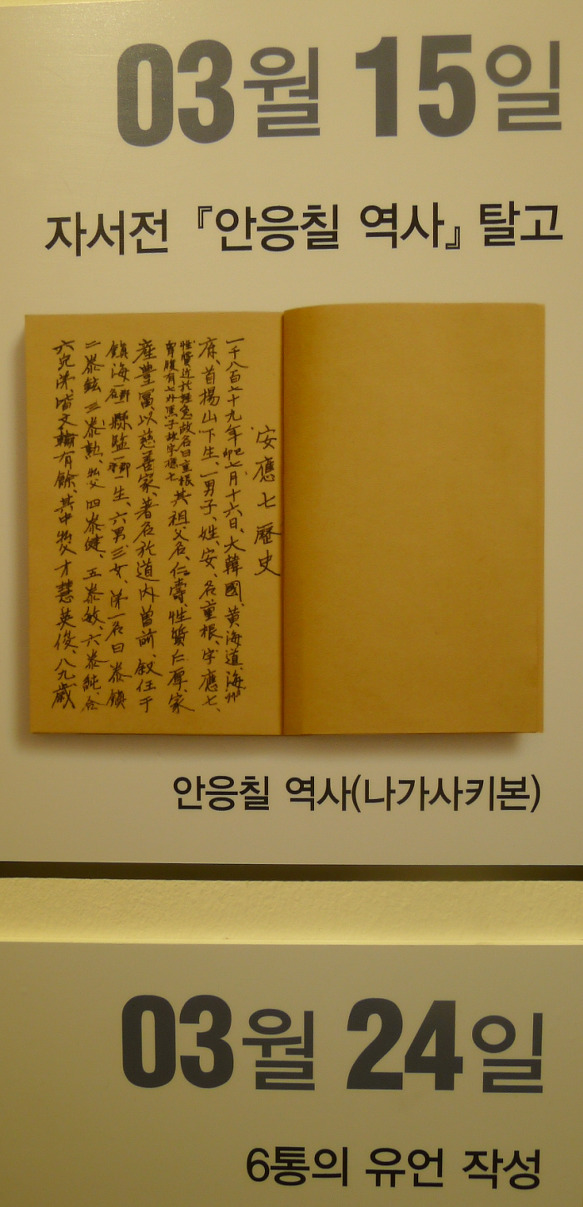 03월 15일
자서전 『안응칠 역사』 탈고
安應七歷史
一千八百七十九年己卯七月十六日、大韓國、黃海道、海州
府、首楊山下生、一男子、姓、安、名重根、字應七、
性質近於輕急故名曰重根
胷腹有七介黑子故字應七
其祖父名、仁壽、性質仁厚、家
產豊富以慈善家、著名於道內曾前、叙任于
鎭海一郡名縣監一郡一生、六男三女、第一名曰泰鎭
二泰鉉、三泰勲、吾父 四泰健、五泰敏、六泰純、合
六兄弟、皆文翰有餘、其中吾父才慧英俊、八九歲
안응칠 역사(나가사키본)
03월 24일
6통의 유언 작성